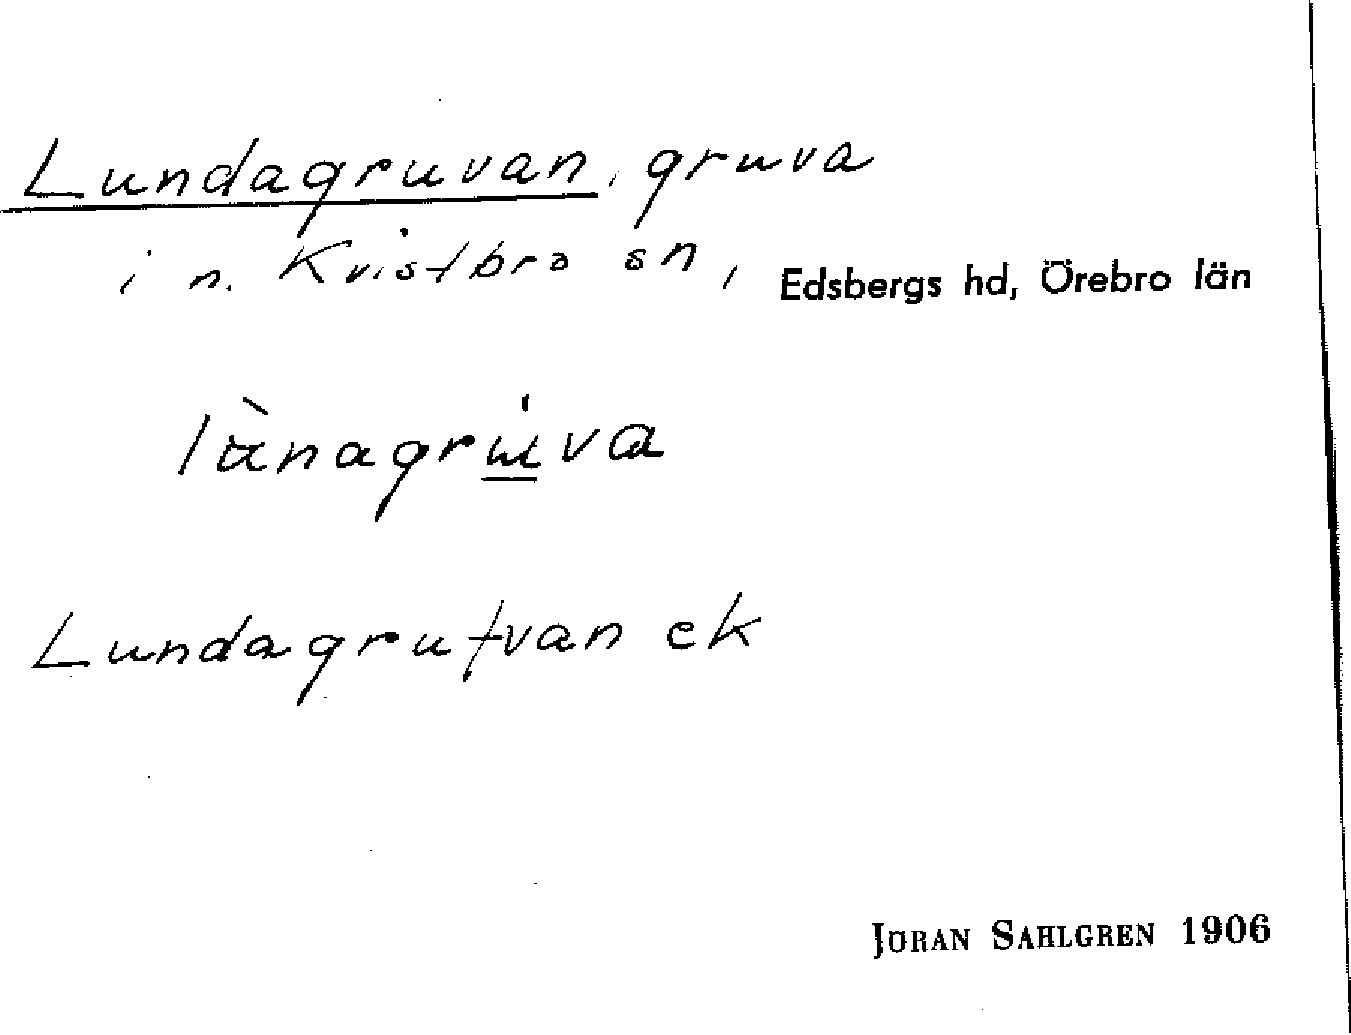 Lundagruvan, gruva
i n. Kvistbro sn, Edsbergs hd, Örebro län
lùnagru̲̍va
Lundagrufvan ek
JÖRAN SAHLGREN 1906